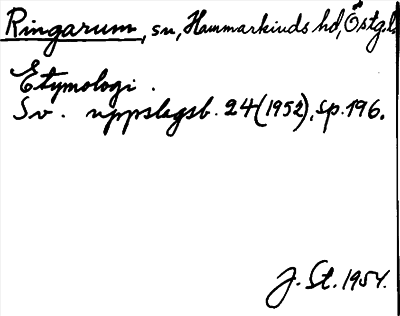 Ringarum, sn, Hammarkinds hd, Östg.l.
Etymologi.
Sv. uppslagsb. 24 (1952), sp. 196.
J. St. 1954.